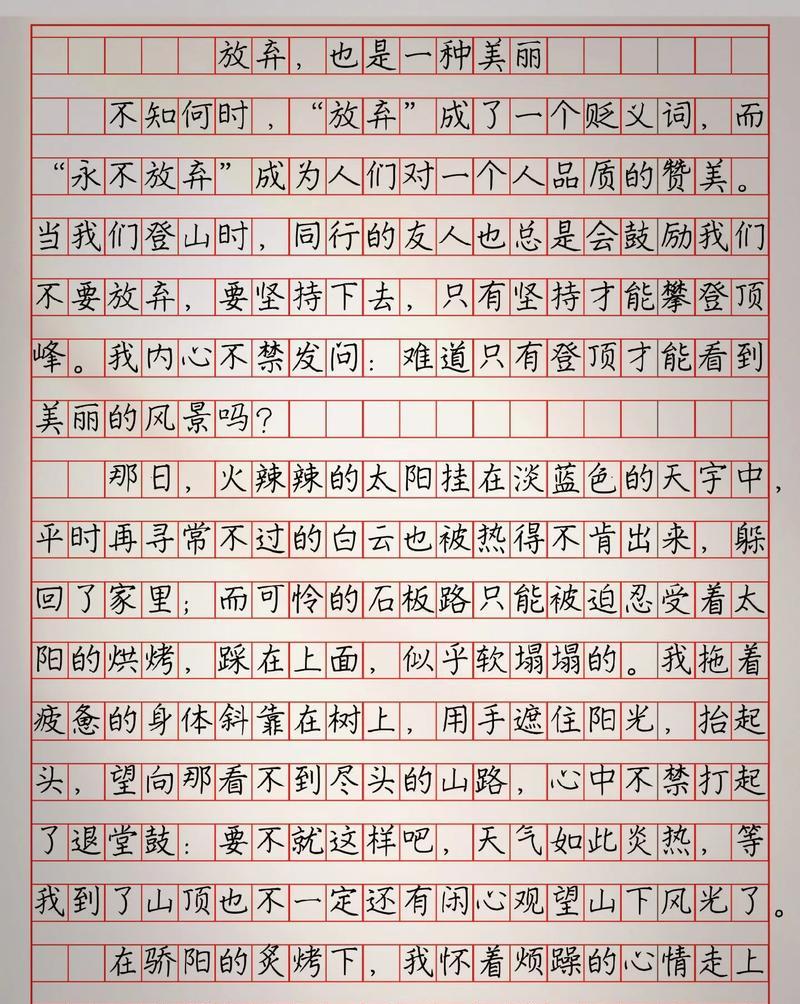 放弃，也是一种美丽
不知何时，“放弃”成了一个贬义词，而
“永不放弃”成为人们对一个人品质的赞美。
当我们登山时，同行的友人也总是会鼓励我们
不要放弃，要坚持下去，只有坚持才能攀登顶
峰。我内心不禁发问：难道只有登顶才能看到
美丽的风景吗？
那日，火辣辣的太阳挂在淡蓝色的天宇中，
平时再寻常不过的白云也被热得不肯出来，躲
回了家里；而可怜的石板路只能被迫忍受着太
阳的烘烤，踩在上面，似乎软塌塌的。我拖着
疲惫的身体斜靠在树上，用手遮住阳光，抬起
头，望向那看不到尽头的山路，心中不禁打起
了退堂鼓：要不就这样吧，天气如此炎热，等
我到了山顶也不一定还有闲心观望山下风光了。
在骄阳的炙烤下，我怀着烦躁的心情走上